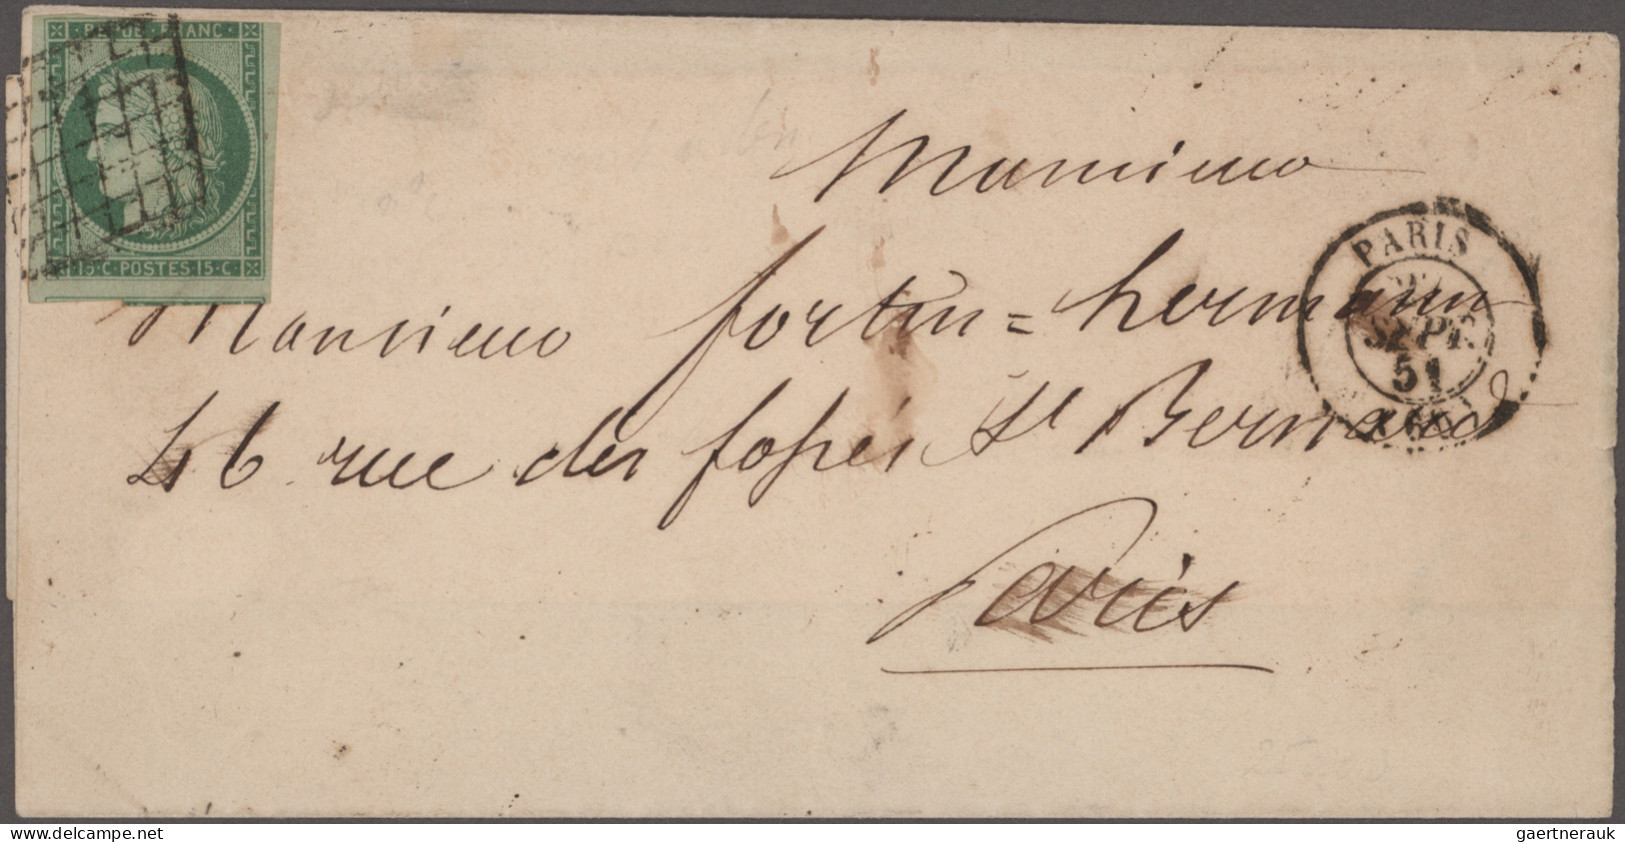 REPUB · FRANC ·
15 · C · POSTES · 15 · C
Monsieur
Monsieur fortin = hermann
46 rue des fossés St Bernard
Paris
PARIS
SEPT.
51
www.delcampe.net
gaertnerauk